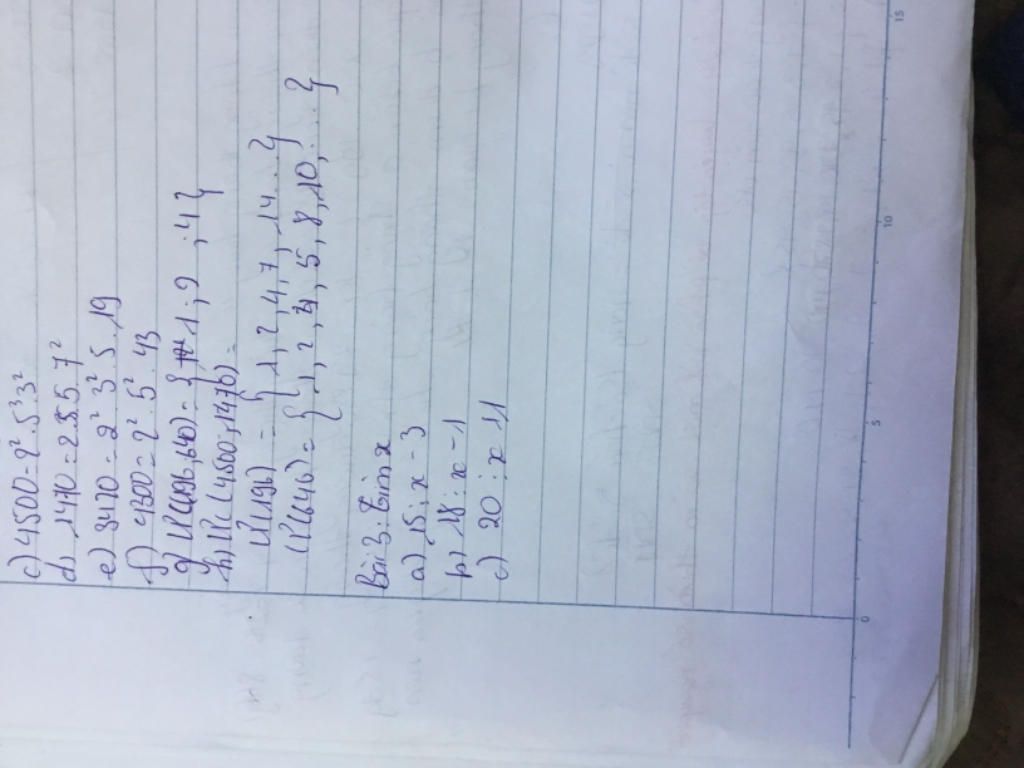 c) 4500 = 2² . 5³ 3²
d) 1470 = 2.3.5. 7²
e) 3420 = 2² 3² . 5 . 19
f) 4300 = 2² . 5² . 43
g) ƯC(196, 640) = { 1 ; 2 ; 4 }
h) ƯC (4500; 1470) =
Ư(196) = { 1, 2, 4, 7, 14 .. }
Ư(640) = { 1, 2, 4, 5, 8, 10, .. }
Bài 3: Tìm x
a) 15 ⋮ x - 3
b) 18 ⋮ x - 1
c) 20 ⋮ x 11
0
5
10
15